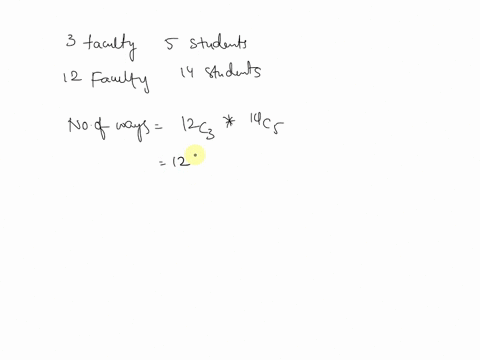 3 faculty 5 students
12 Faculty 14 students
No. of ways = 12C3 * 14C5
= 12